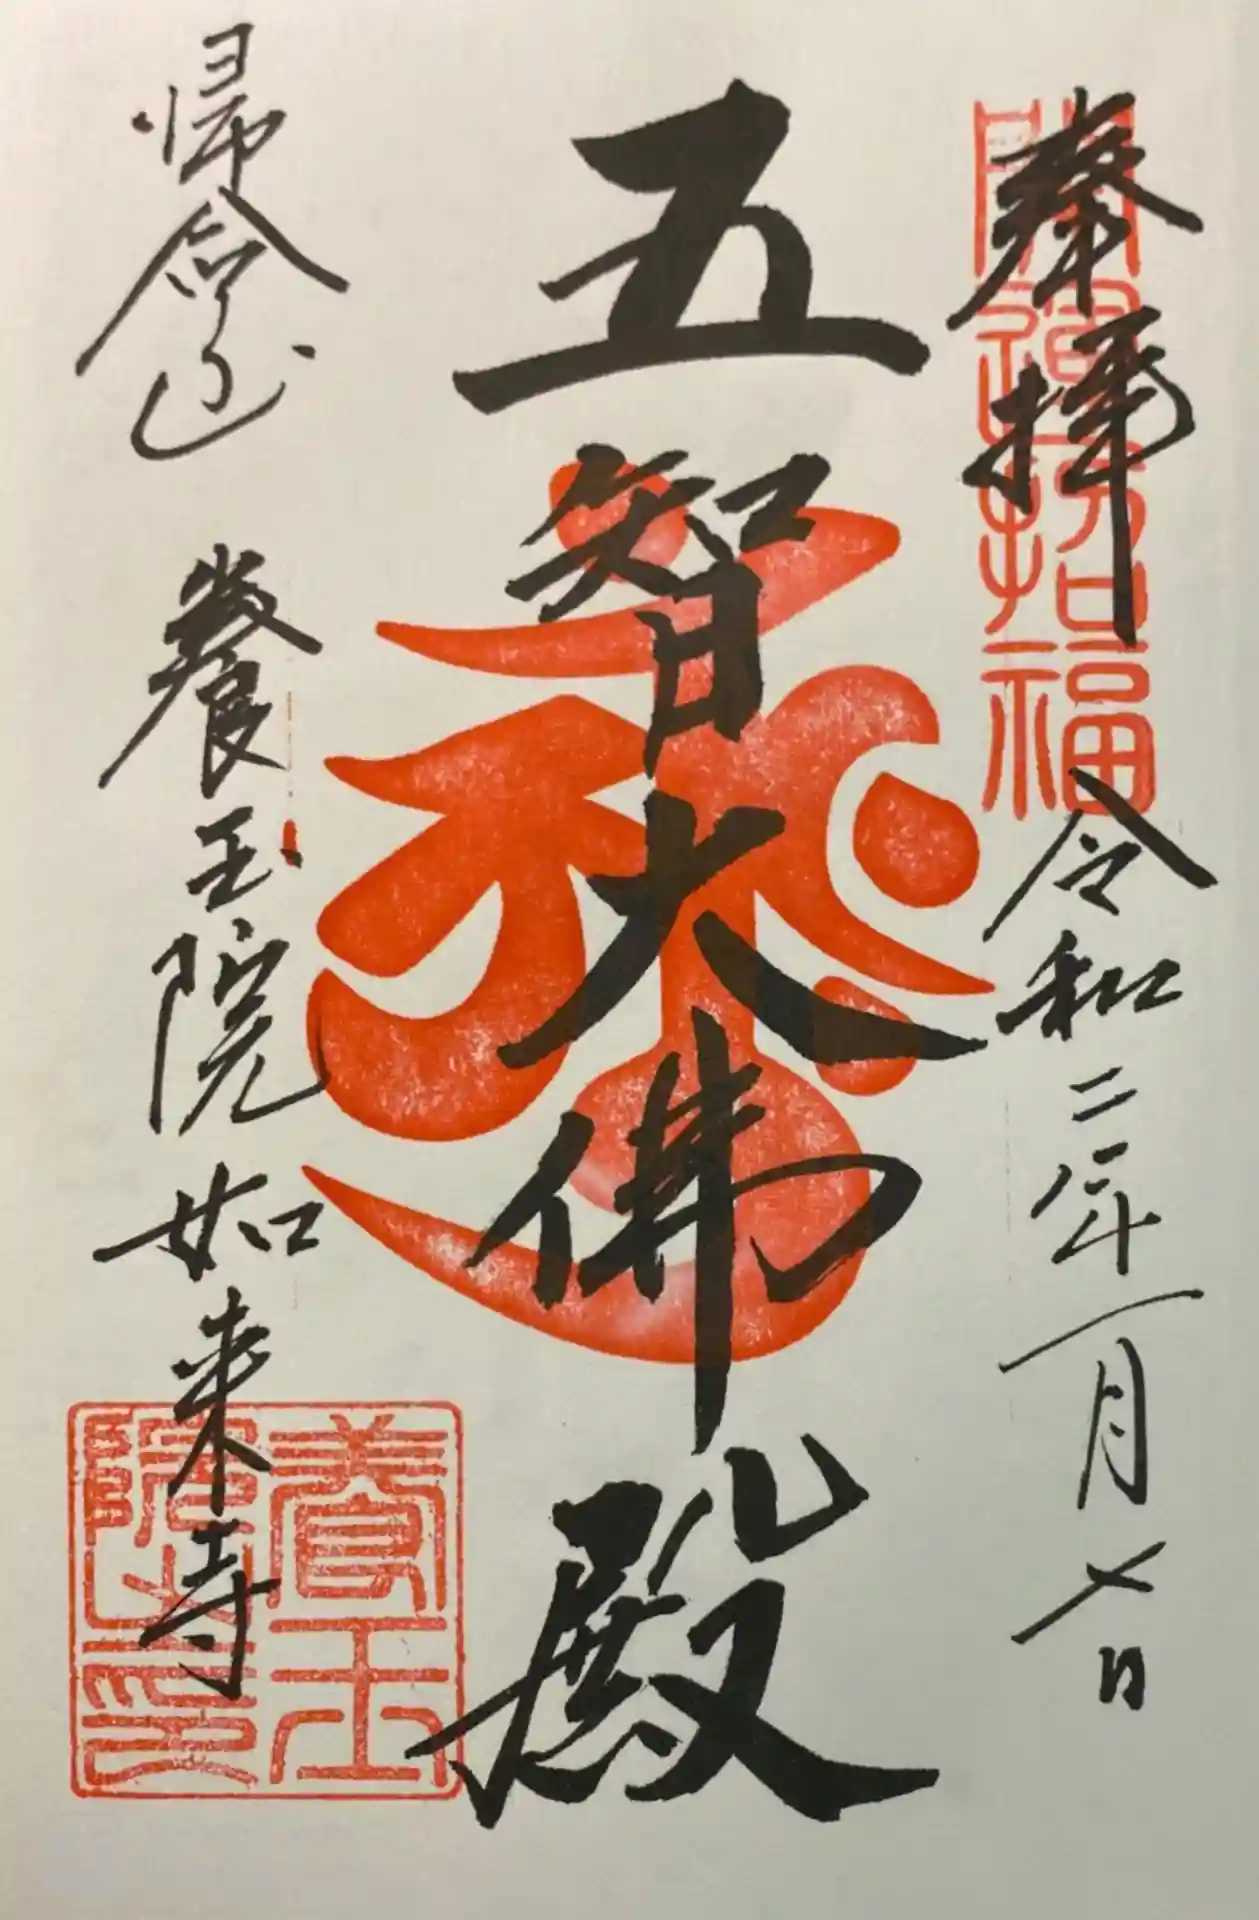 奉拝
令和二年一月七日
開運招福
五智大佛殿
帰命山
養玉院如来寺
養玉
院印